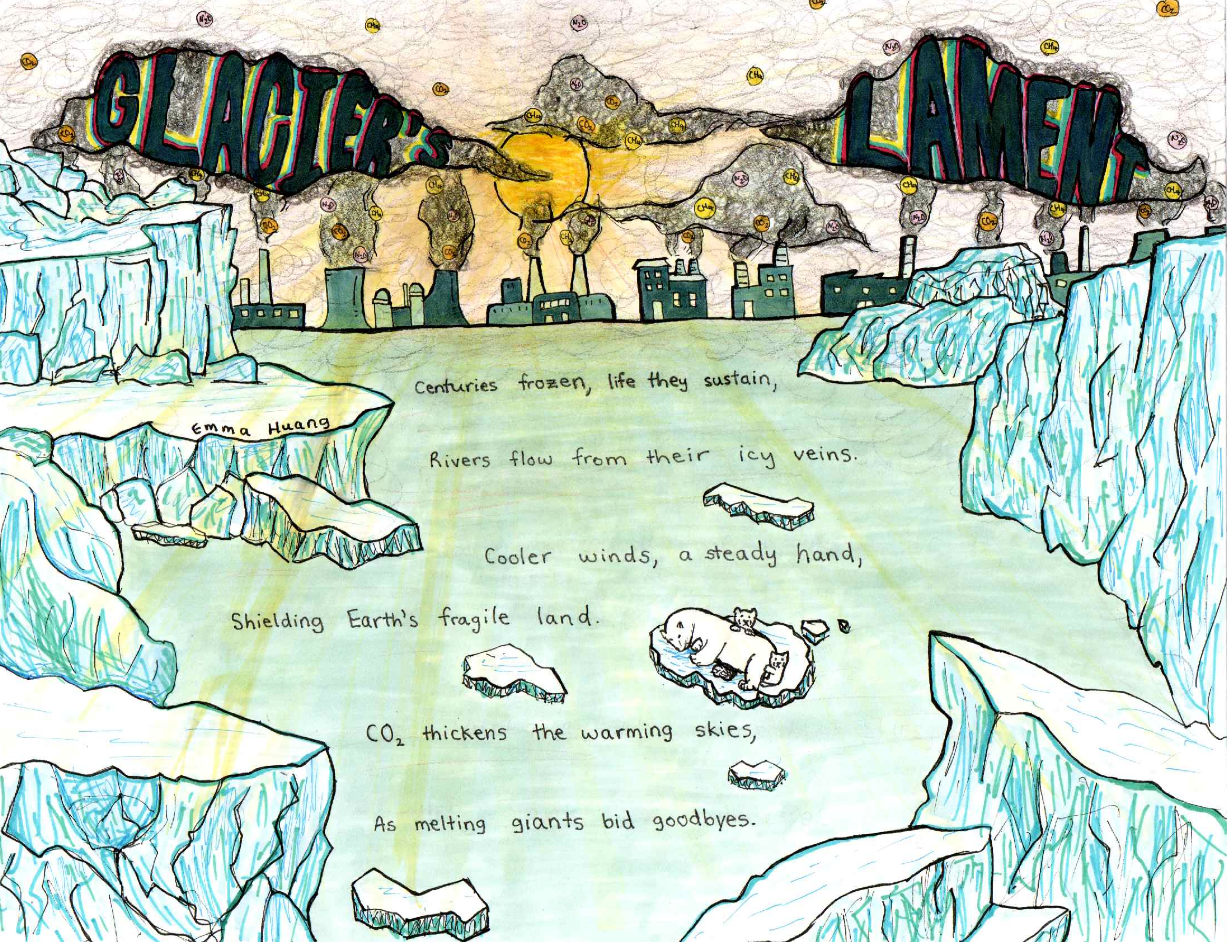 GLACIER'S LAMENT
Centuries frozen, life they sustain,
Emma Huang
Rivers flow from their icy veins.
Cooler winds, a steady hand,
Shielding Earth's fragile land.
CO₂ thickens the warming skies,
As melting giants bid goodbyes.